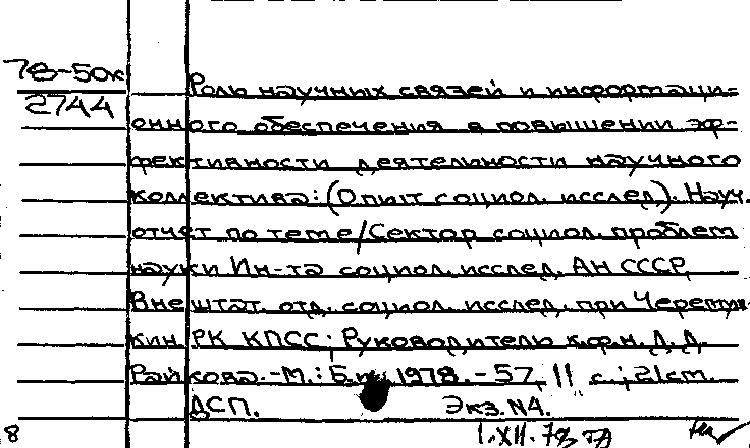 78-50к
2744
Роль научных связей и информаци=
онного обеспечения в повышении эф-
фективности деятельности научного
коллектива: (Опыт социол. исслед.). Науч.
отчет по теме/Сектор социол. проблем
науки Ин-та социол. исслед. АН СССР,
Внештат. отд. социол. исслед. при Черемуш=
кин. РК КПСС; Руководитель к.ф.н. Д.Д.
Райкова.-М.: Б.и., 1978.-57, II с.; 21см.
ДСП. Экз. N4.
8 1.XII.78